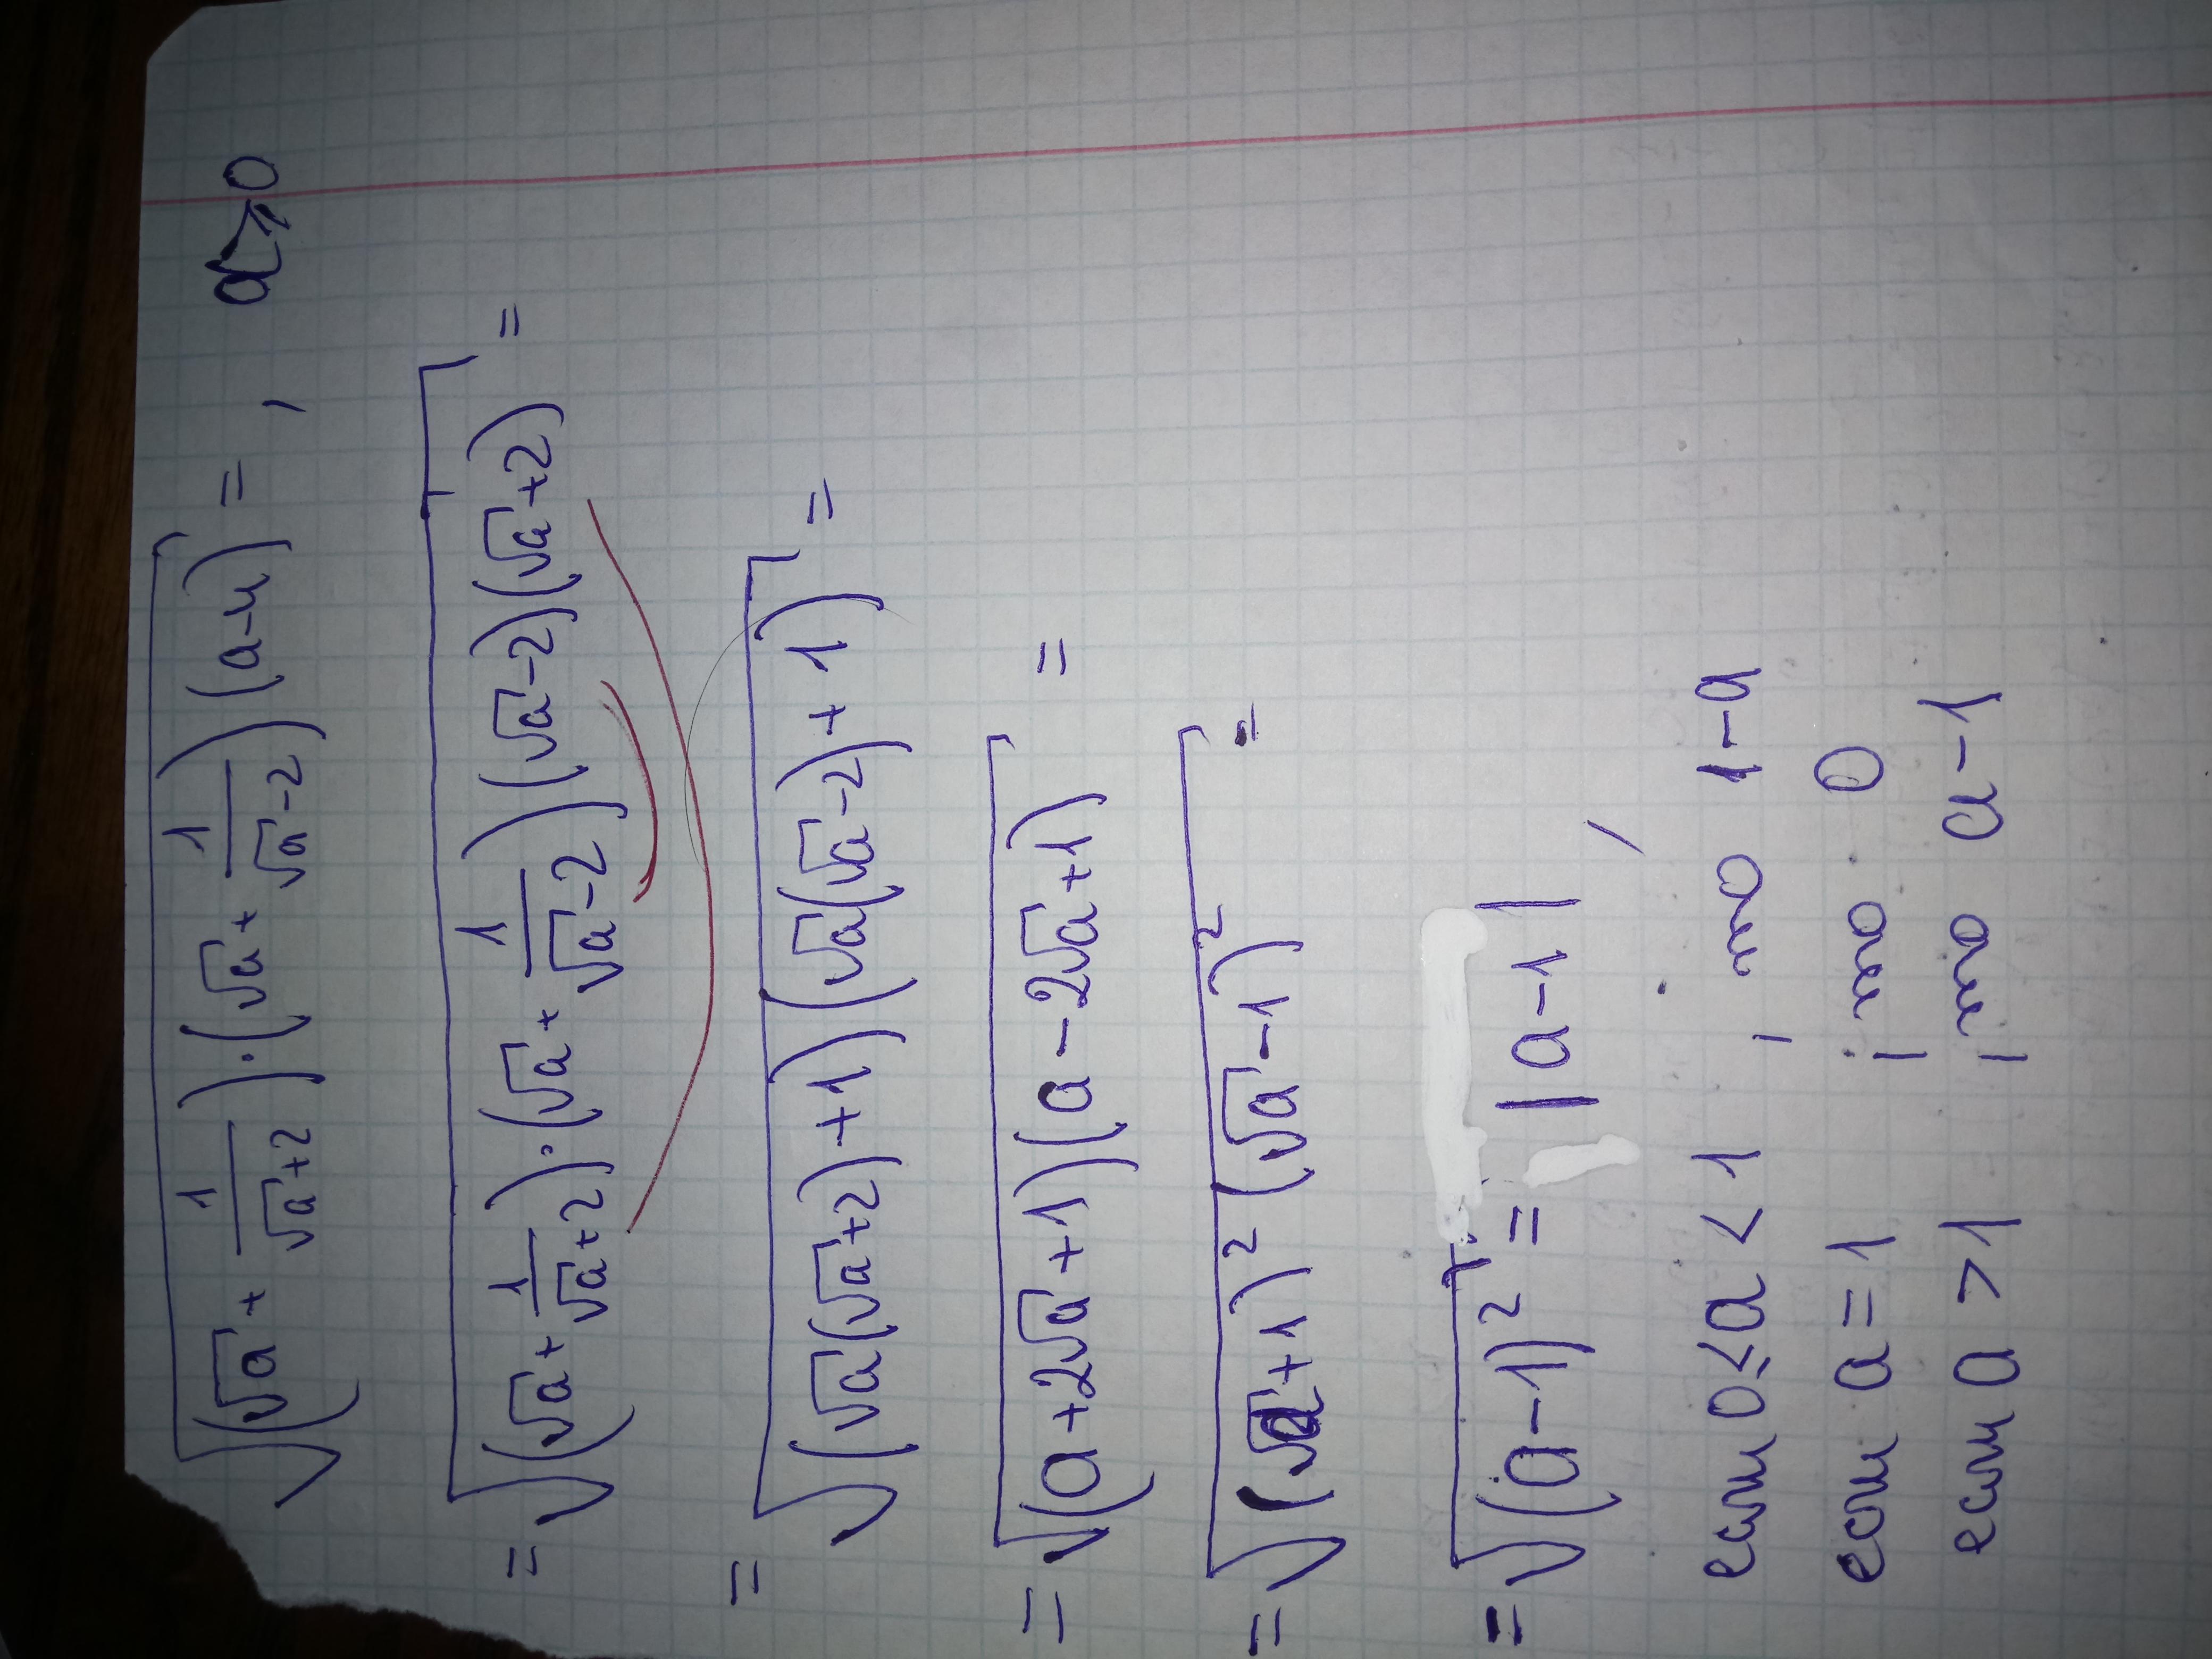 √((√a + 1/(√a+2))·(√a + 1/(√a−2))(a−4)) = , a ⩾ 0
= √((√a + 1/(√a+2))·(√a + 1/(√a−2))(√a−2)(√a+2)) =
= √((√a(√a+2)+1)(√a(√a−2)+1)) =
= √((a+2√a+1)(a−2√a+1)) =
= √((√a+1)²(√a−1)²) =
= √((a−1)²) = |a−1|,
если 0 ≤ a < 1, то 1−a
если a = 1; то 0
если a > 1; то a−1